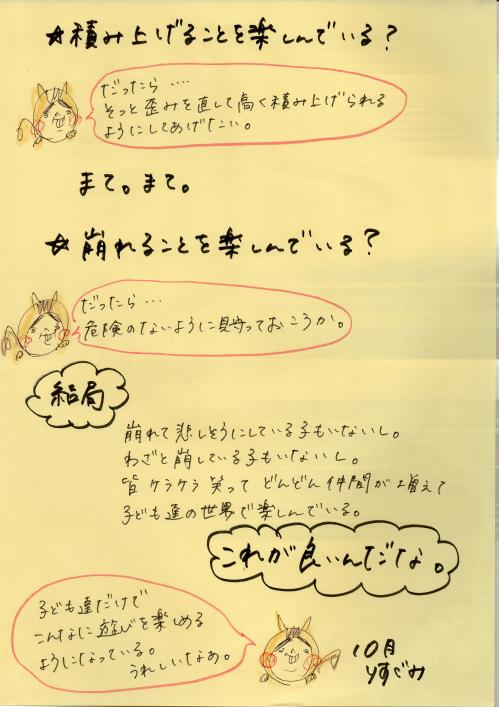 ☆積み上げることを楽しんでいる？
だったら‥‥
そっと歪みを直して高く積み上げられる
ようにしてあげたい。
まて。まて。
☆崩れることを楽しんでいる？
だったら…
危険のないように見守っておこうか。
結局
崩れて悲しそうにしている子もいないし。
わざと崩している子もいないし。
皆ケラケラ笑ってどんどん仲間が増えて
子ども達の世界で楽しんでいる。
これが良いんだな。
子ども達だけで
こんなに遊びを楽しめる
ようになっている。
うれしいなぁ。
10月
りすぐみ